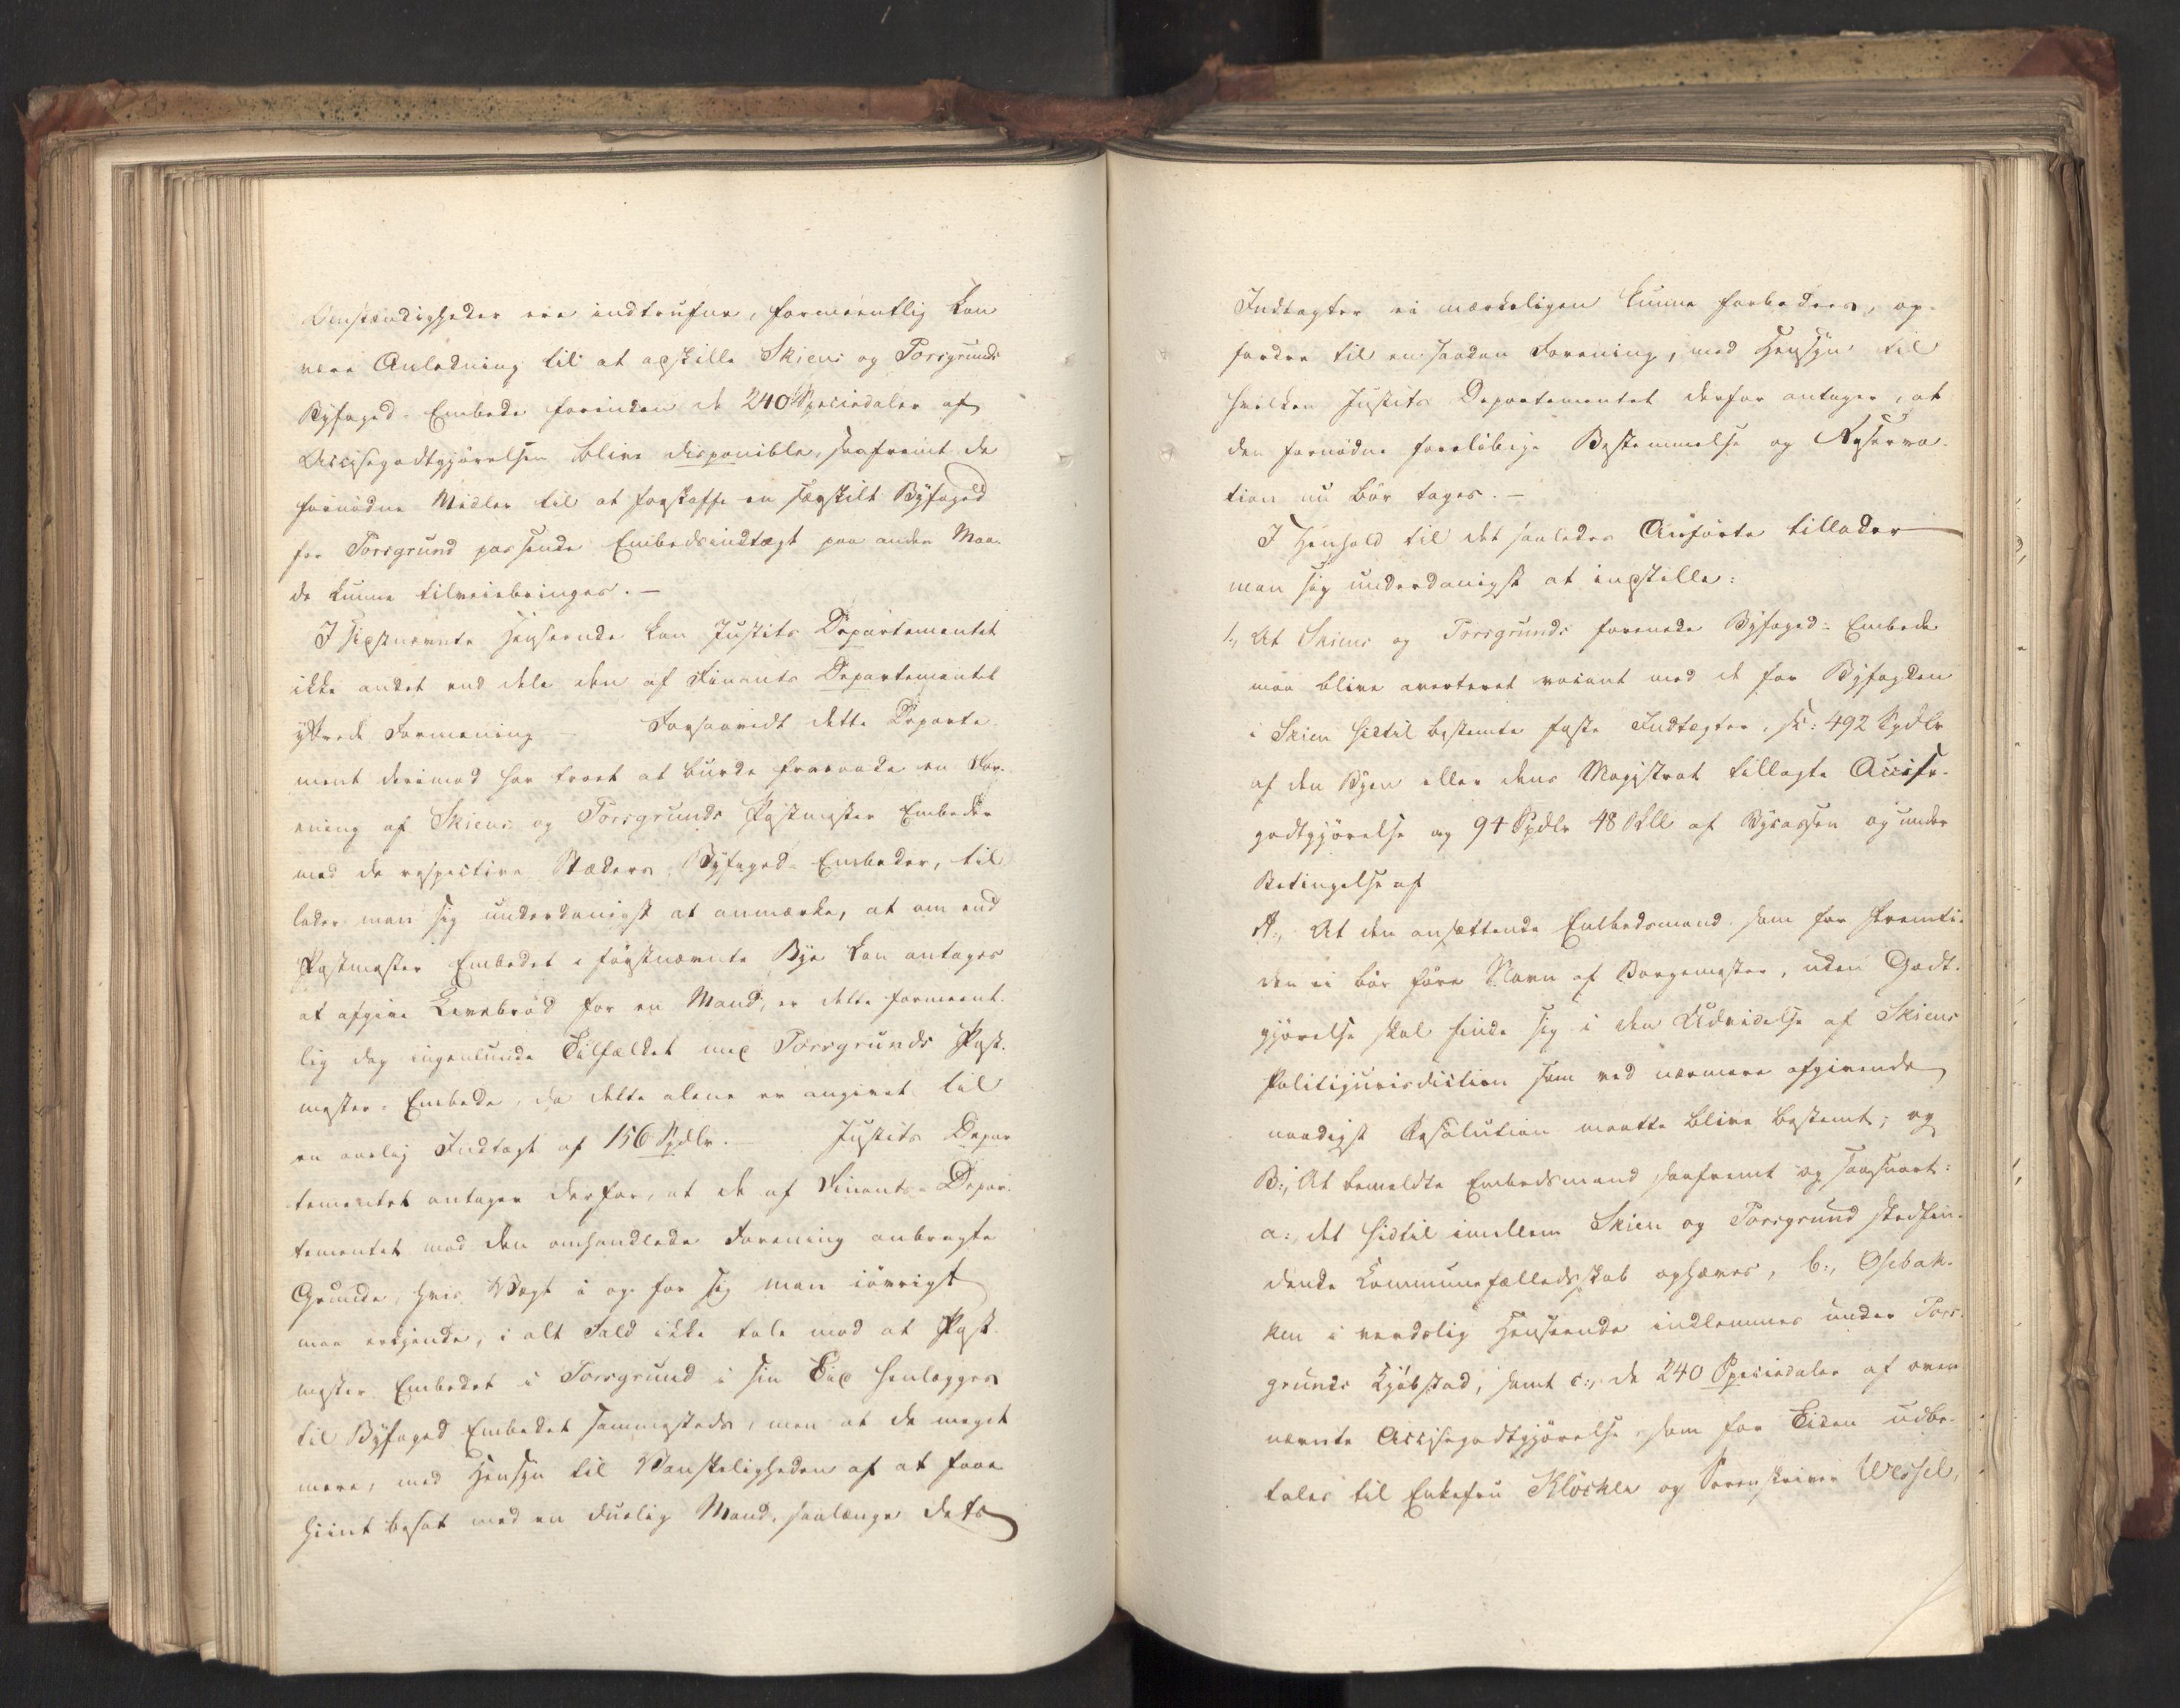 Omstændigheder ere indtrufne, formeentlig kan
være Anledning til at adskille Skiens og Porsgrunds
Byfoged-Embede forinden de 240 Speciedaler af
Accisegodtgjørelsen blive disponible, saafremt de
fornødne Midler til at forskaffe en særskilt Byfoged
for Porsgrund passende Embedsindtægt paa anden Maa-
de kunne tilveiebringes. —
I sidstnævnte Henseende kan Justits Departementet
ikke andet end dele den af Finants Departementet
yttrede Formening — Forsaavidt dette Departe-
ment derimod har troet at burde fraraade en For-
ening af Skiens og Porsgrunds Postmester Embeder
med de respective Stæders Byfoged-Embeder, til-
lader man sig underdanigst at anmærke, at om end
Postmester Embedet i førstnævnte Bye kan antages
at afgive Levebrød for en Mand, er dette formeent-
lig dog ingenlunde Tilfældet med Porsgrunds Post-
mester-Embede, da dette alene er angivet til
en aarlig Indtægt af 156 Spdlr. — Justits Depar-
tementet antager derfor, at de af Finants-Depar-
tementet mod den omhandlede Forening anbragte
Grunde, hvis Vægt i og for sig man iøvrigt
maa erkjende, i alt Fald ikke tale mod at Post-
mester Embedet i Porsgrund i sin Tid henlægges
til Byfoged Embedet sammesteds, men at de meget
mere, med Hensyn til Vanskeligheden af at faae
hiint besat med en duelig Mand, saalænge dets
Indtægter ei mærkeligen kunne forbedres, op-
fordre til en saadan Forening, med Hensyn til
hvilken Justits Departementet derfor antager, at
den fornødne foreløbige Bestemmelse og Reserva-
tion nu bør tages. —
I Henhold til det saaledes Anførte tillader
man sig underdanigst at indstille:
1., At Skiens og Porsgrunds forenede Byfoged-Embede
maa blive averteret vacant med de for Byfogden
i Skien hidtil bestemte faste Indtægter, sc: 492 Spdlr
af den Byen eller dens Magistrat tillagte Accise-
godtgjørelse og 94 Spdlr 48 Skll af Bycassen og under
Betingelse af
A:, At den ansættende Embedsmand som for Fremti-
den ei bør føre Navn af Borgemester, uden Godt-
gjørelse skal finde sig i den Udvidelse af Skiens
Politijurisdiction som ved nærmere afgivende
naadigst Resolution maatte blive bestemt; og
B:, At bemeldte Embedsmand saafremt og saasnart:
a:, det hidtil imellem Skien og Porsgrund stedfin-
dende Kommunefælledsskab ophæves, b:, Osebak-
ken i verdslig Henseende indlemmes under Pors-
grunds Kjøbstad, samt c:, de 240 Speciedaler af oven-
nævnte Accisegodtgjørelse, som for Tiden udbe-
tales til Enkefru Kløcker og Sorenskriver Wessel,